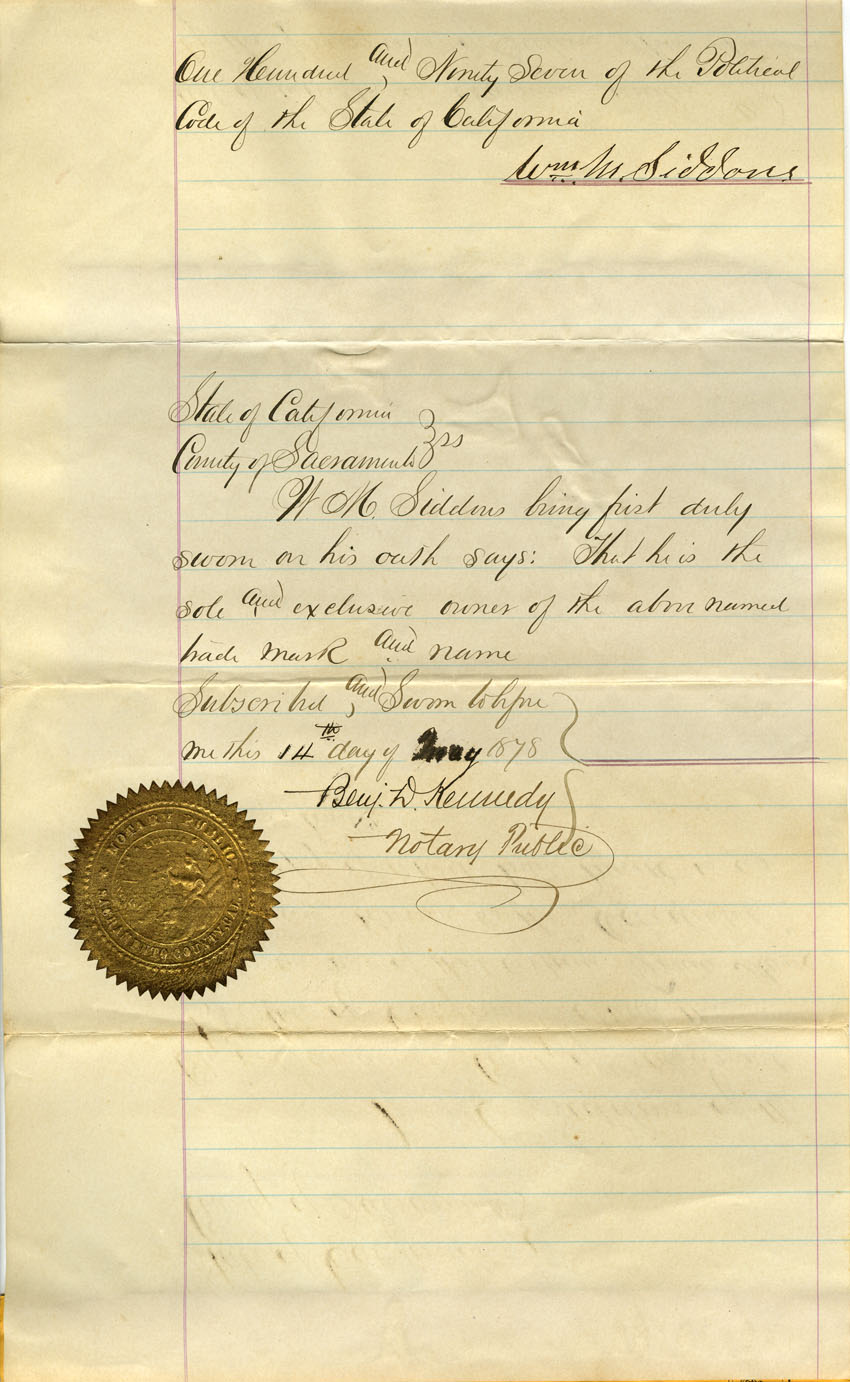 One Hundred and Ninety Seven of the Political
Code of the State of California
Wm. M. Siddons
State of California
County of Sacramento } ss
W M. Siddons being first duly
sworn on his oath says: That he is the
sole and exclusive owner of the above named
trade mark and name
Subscribed and Sworn to before
me this 14th day of May 1878
Benj. D. Kennedy
Notary Public
NOTARY PUBLIC
SACRAMENTO COUNTY CAL.